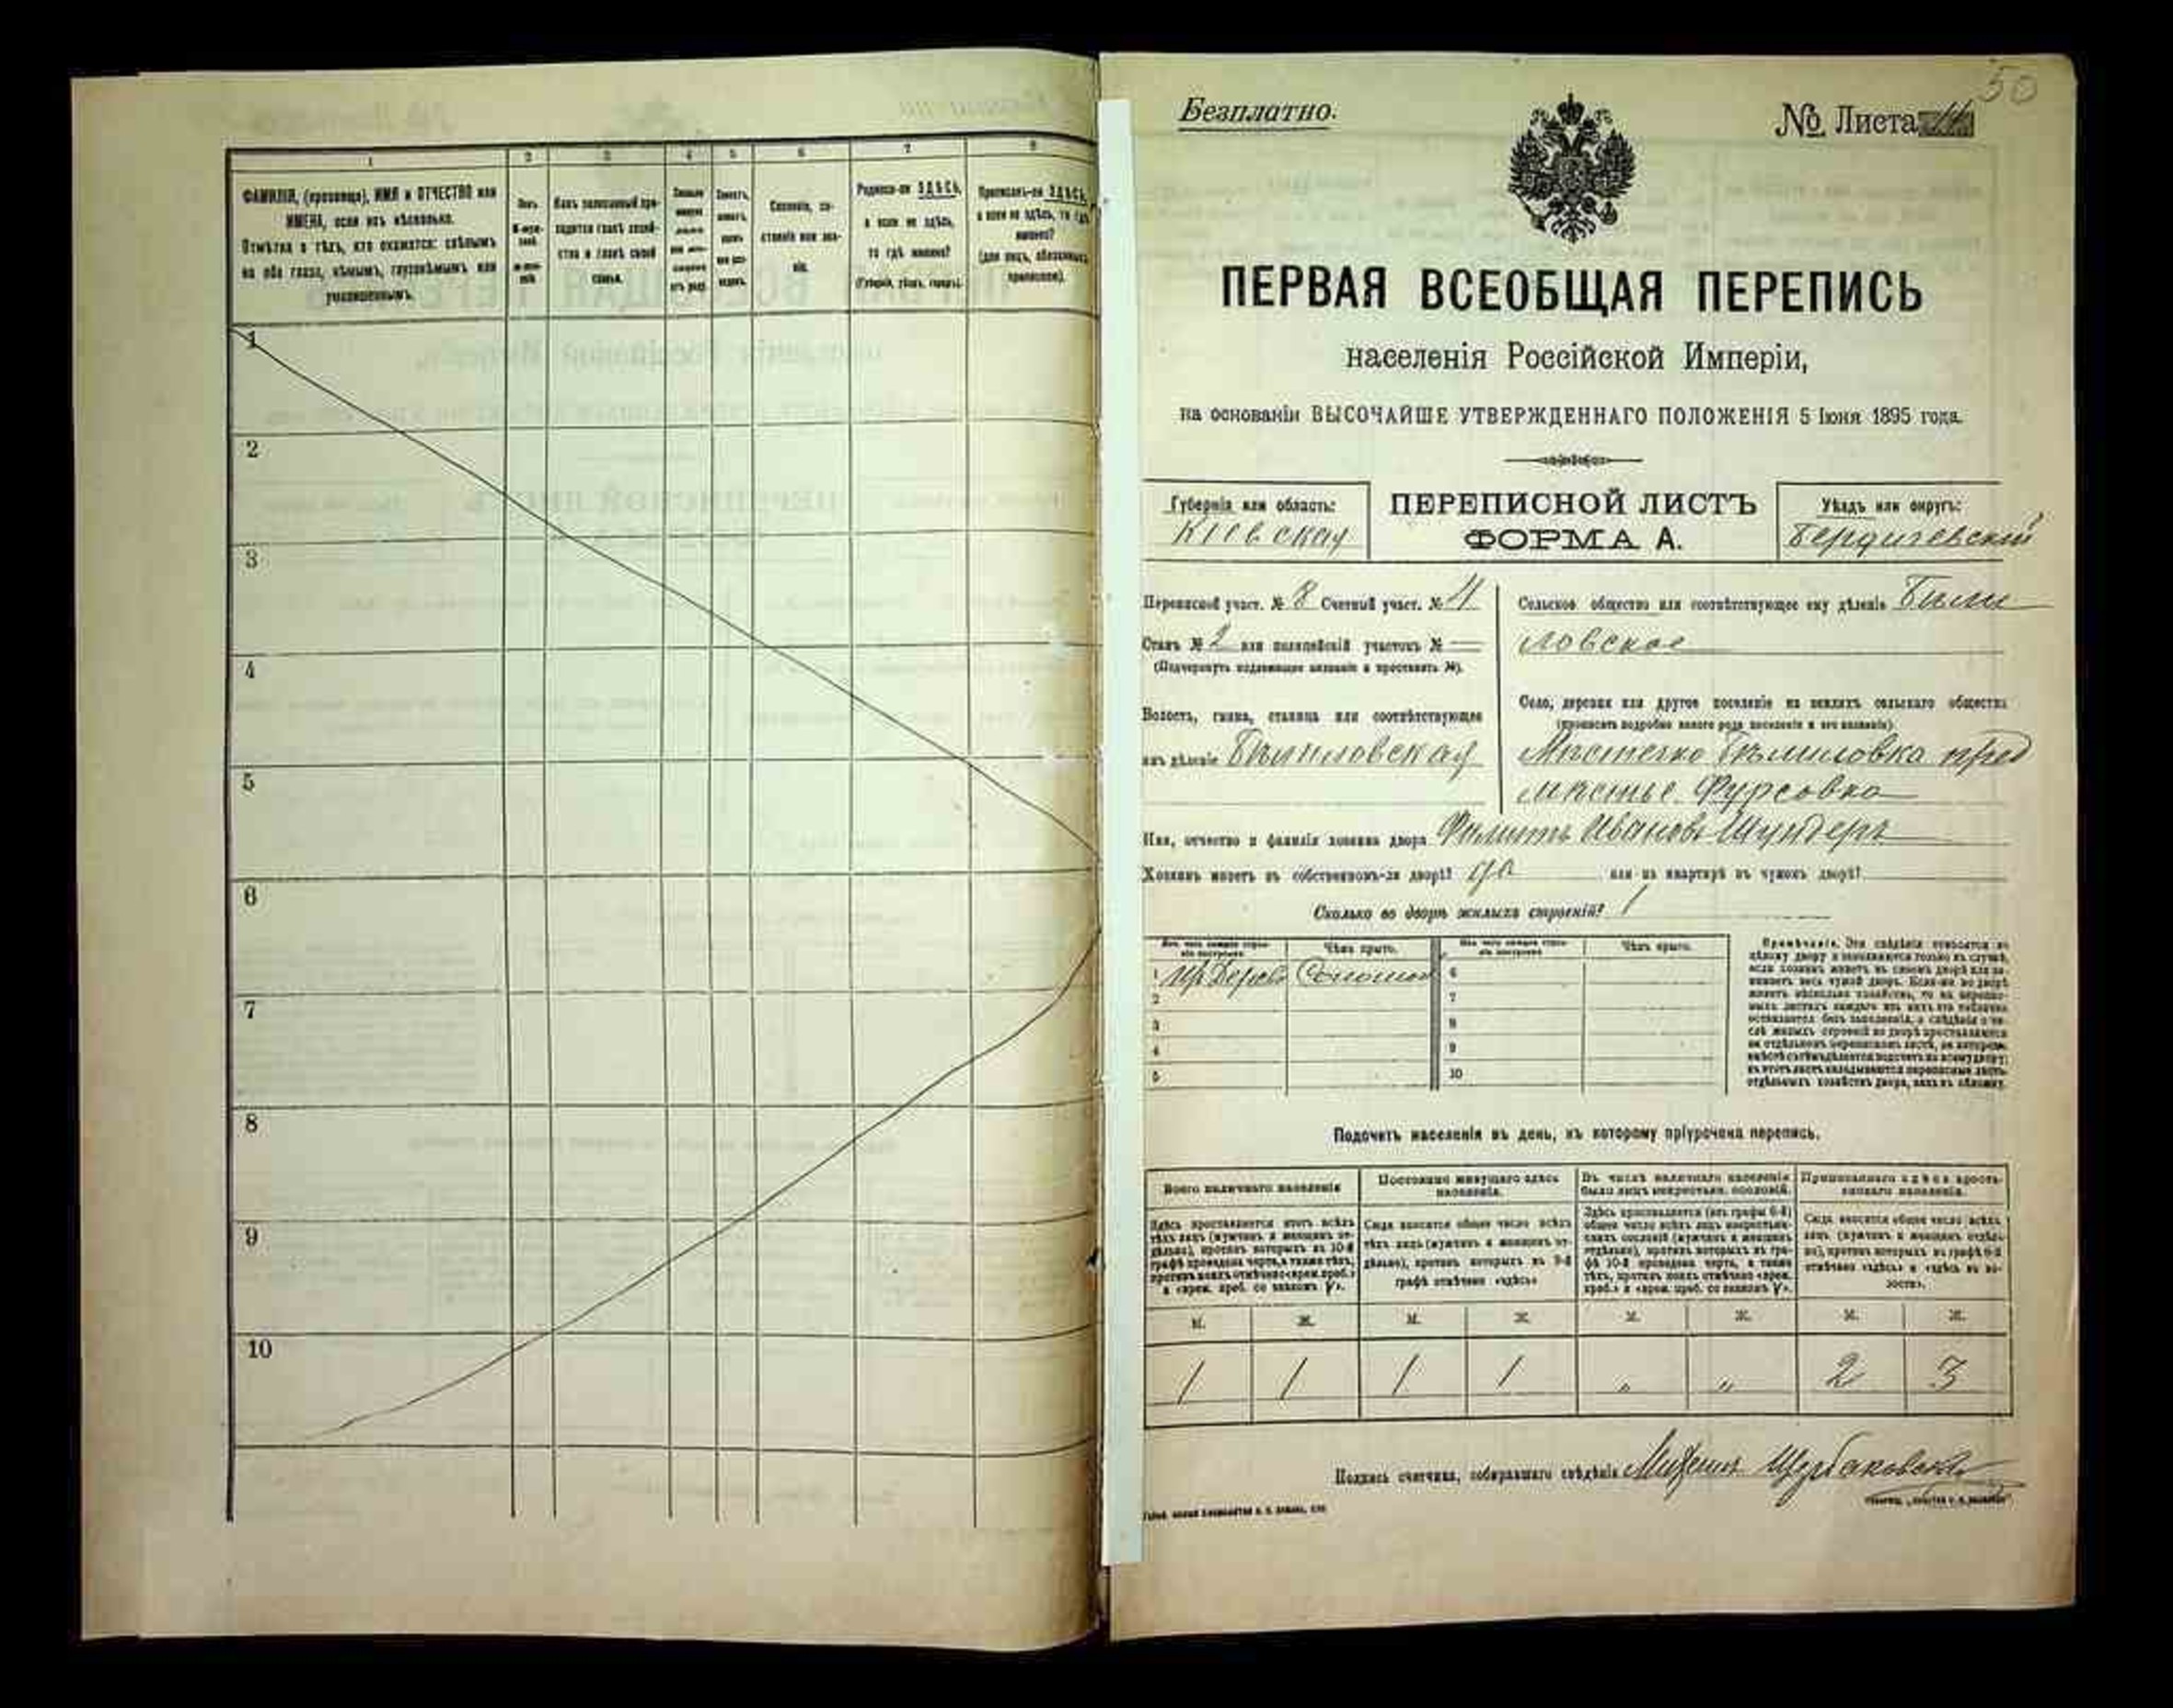 1 2 3 4 5 6 7 8
ФАМИЛІЯ, (прозвище), ИМЯ и ОТЧЕСТВО или
ИМЕНА, если ихъ нѣсколько.
Отмѣтка о тѣхъ, кто окажется: слѣпымъ
на оба глаза, нѣмымъ, глухонѣмымъ или
умалишеннымъ.
Полъ.
Какъ записанный при-
ходится главѣ хозяй-
ства и главѣ своей
семьи.
Сословіе, со-
стояніе или зва-
ніе.
Родился-ли ЗДѢСЬ,
а если не здѣсь,
то гдѣ именно?
(Губернія, уѣздъ, городъ).
Приписанъ-ли ЗДѢСЬ,
а если не здѣсь, то гдѣ
именно?
(для лицъ, обязанныхъ
припискою).
1
2
3
4
5
6
7
8
9
10
50
Безплатно.
№ Листа
ПЕРВАЯ ВСЕОБЩАЯ ПЕРЕПИСЬ
населенія Россійской Имперіи,
на основаніи ВЫСОЧАЙШЕ УТВЕРЖДЕННАГО ПОЛОЖЕНІЯ 5 Іюня 1895 года.
Губернія или область:
Кіевская
ПЕРЕПИСНОЙ ЛИСТЪ
ФОРМА А.
Уѣздъ или округъ:
Бердичевскій
Переписной участ. № 8 Счетный участ. № 4
Станъ № 2 или полицейскій участокъ № —
(Подчеркнуть надлежащее названіе и проставить №).
Волость, гмина, станица или соотвѣтствующее
имъ дѣленіе Бѣлиловская
Сельское общество или соотвѣтствующее ему дѣленіе Били
ловское
Село, деревня или другое поселеніе на земляхъ сельскаго общества
(прописать подробно какого рода поселеніе и его названіе)
Мѣстечко Бѣлиловка пред
мѣстье Фурсовка
Имя, отчество и фамилія хозяина двора Филипъ Ивановъ Шундеръ
Хозяинъ живетъ въ собственномъ-ли дворѣ? да или въ квартирѣ въ чужомъ дворѣ?
Сколько во дворѣ жилыхъ строеній? 1
Изъ чего каждое строе-
ніе построено Чѣмъ крыто. Изъ чего каждое строе-
ніе построено Чѣмъ крыто.
1 Соломой 6
2 7
3 8
4 9
5 10
Примѣчаніе. Эти свѣдѣнія относятся къ
цѣлому двору и заполняются только въ случаѣ,
если хозяинъ живетъ въ своемъ дворѣ или за-
нимаетъ весь чужой дворъ. Если-же во дворѣ
живетъ нѣсколько хозяйствъ, то на перепис-
ныхъ листахъ каждаго изъ нихъ эта табличка
оставляется безъ заполненія, а свѣдѣнія о чи-
слѣ жилыхъ строеній во дворѣ проставляются
на отдѣльномъ переписномъ листѣ, на которомъ
Подсчетъ населенія въ день, къ которому пріурочена перепись.
Всего наличнаго населенія
Постоянно живущаго здѣсь
населенія.
Въ числѣ наличнаго населенія
было лицъ некрестьян. сословій.
Приписаннаго здѣсь кресть-
янскаго населенія.
Здѣсь проставляется итогъ всѣхъ
тѣхъ лицъ (мужчинъ и женщинъ от-
дѣльно), противъ которыхъ въ 10-й
графѣ проведена черта, а также тѣхъ,
противъ коихъ отмѣчено «врем. преб.»
и «врем. преб. со знакомъ V».
Сюда вносится общее число всѣхъ
тѣхъ лицъ (мужчинъ и женщинъ от-
дѣльно), противъ которыхъ въ 9-й
графѣ отмѣчено «здѣсь»
Здѣсь проставляется (изъ графы 6-й)
общее число всѣхъ лицъ некрестьян-
скихъ сословій (мужчинъ и женщинъ
отдѣльно), противъ которыхъ въ гра-
фѣ 10-й проведена черта, а также
тѣхъ, противъ коихъ отмѣчено «врем.
преб.» и «врем. преб. со знакомъ V».
Сюда вносится общее число всѣхъ
лицъ (мужчинъ и женщинъ отдѣль-
но), противъ которыхъ въ графѣ 8-й
отмѣчено «здѣсь» и «здѣсь въ во-
лости».
М. Ж. М. Ж. М. Ж. М. Ж.
1 1 1 1 „ „ 2 3
Подпись счетчика, собиравшаго свѣдѣнія